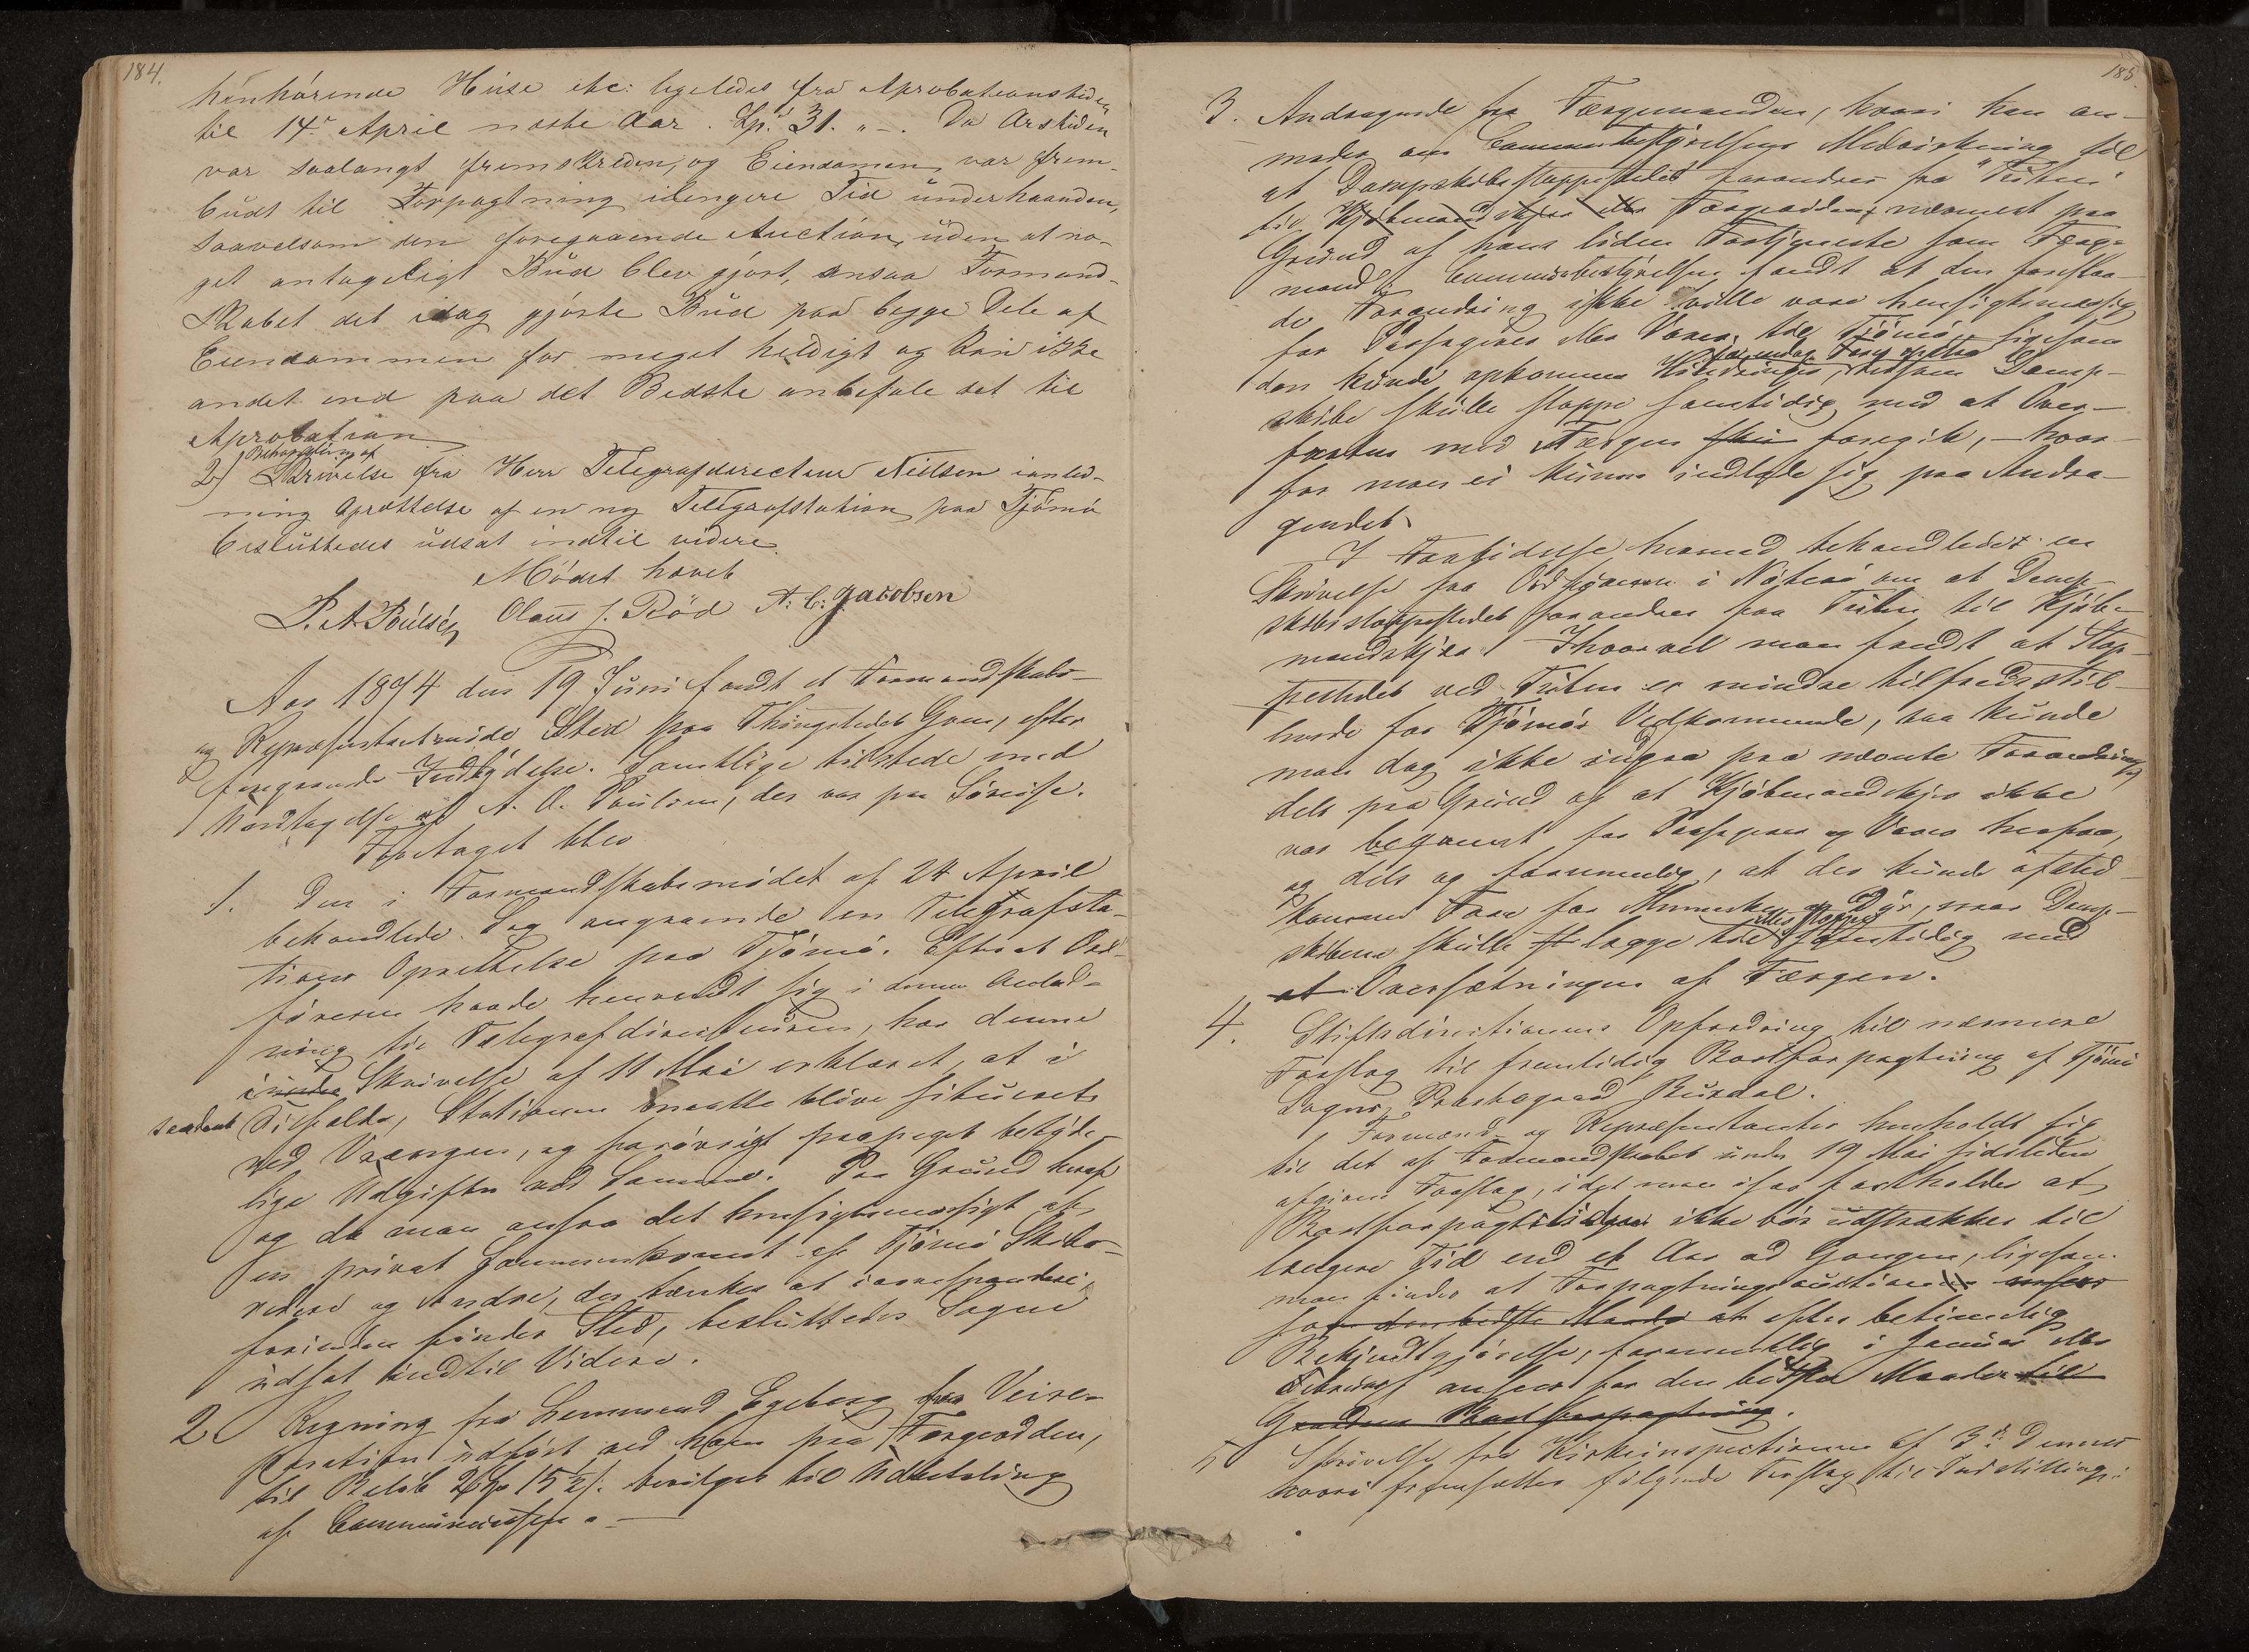 184.
henhørende Huse etc: ligeledes fra Aprobationstiden
til 14de April næste Aar. Spd 31. „ –. Da Arstiden
var saalangt fremskreden, og Eiendomen var frem-
budt til Forpagtning ilengere Tid underhaanden,
saavelsom den foregaaende Auction, uden at no-
get antageligt Bud blev gjort, ansaa Formand-
skabet det idag gjørte Bud paa begge Dele af
Eiendommen for meget heldigt og kan ikke
andet end paa det Bedste anbefale det til
Aprobation
Behandling af
2) Skrivelse fra Herr Telegrafdirecteur Nielsen ianled-
ning Oprettelse af en ny Telegrafstation paa Tjømø
besluttedes udsat indtil videre.
Mødet hævet
P. A. Poulsen Olaus J. Rød A. C. Jacobsen
Aar 1874 den 19 Juni fandt et Formandskabs-
og Repræsentantmøde Sted paa Thingstedet Gven, efter
foregaaende Indbydelse. Samtlige tilstede med
Undtagelse af A. O. Poulsen, der var paa Søreise.
Foretaget blev
1. Den i Formandskabsmødet af 24 April
behandlede Sag angaaende en Telegrafsta-
tions Oprettelse paa Tjømø. Efterat Ord-
føreren havde henvendt sig i denne Anled-
ning til Telegrafdirecteuren, har denne
i under Skrivelse af 11 Mai erklæret, at i
saadant Tilfælde, Stationen maatte blive situeret
ved Vrængen, og forøvrigt paapeget betyde-
lige Udgifter ved Samme. Paa Grund heraf
og da man ansaa det hensigtsmæssigt at
en privat Sammenkomst af Tjømø Skibs-
redere og Andre, der tænkes at interesseres
forinden finder Sted, besluttedes Sagen
udsat indtil Videre.
2. Regning fra Lensmand Egeberg for Veire-
paration udført ved ham paa Færgeodden,
til Beløb 15½ s. bevilges til Udbetaling
af Communecassen. –
185
3. Andragende fra Færgemanden, hvori han an-
moder om Communebestyrelsens Medvirkning til
at Dampskibsstoppestedet forandres fra "Tuten"
til Kjøbmandskjær eller Færgeodden, nærmest paa
Grund af hans liden Fortjeneste som Færge-
mand; Communebestyrelsen fandt at den foreslaa-
de Forandring ikke vilde være hensigtsmæssig
for Passagerer eller Varer til Tjømø, ligesom
der kunde opkomme Hindringer, dersom Damp-
skibe skulle stoppe samtidig med at Over-
farten med Færgen sku foregik, – hvor-
for man ei kunne indlade sig paa Andra-
gendet.
I Forbindelse hermed behandledes en
Skrivelse fra Ordføreren i Nøterø om at Damp-
skibsstoppestedet forandres fra Tuten til Kjøb-
mandskjær. Ihvorvel man fandt at Stop-
pestedet ved Tuten er mindre tilfredsstil-
lende for Tjømøs Vedkommende, saa kunde
man dog ikke indgaa paa nævnte Forandring,
dels paa Grund af at Kjøbmandskjær ikke
var beqvemt for Passagerer og Varer herfra,
og dels og fornemmelig, at der kunde afsted-
komme Fare for Mennesker og Dyr, naar Damp-
eller stoppe
skibene skulle lægge til samtidig med
at Oversætningen af Færgen.
4. Stiftsdirectionens Opfordring til nærmere
Forslag til fremtidig Bortforpagtning af Tjømø
Sogns Præstegaard Burdal.
Formænd og Repræsentanter henholdt sig
til det af Formandskabet under 19 Mai sidstleden
afgivne Forslag, idet man især fastholder at
Bortforpagtningen ikke bør udstrækkes til
længere Tid end et Aar ad Gangen, ligesom
man finder at Forpagtningsauctionen ansees
for den bedste Maade at efter betimelig
Bekjendtgjørelse, fornemmelig i Januar eller
Februar ansees for den bedste Maade til
Gaardens Bortforpagtning.
5 Skrivelse fra Kirkeinspectionen af 3de Dennes
hvori fremsættes følgende Forslag til Indstilling: